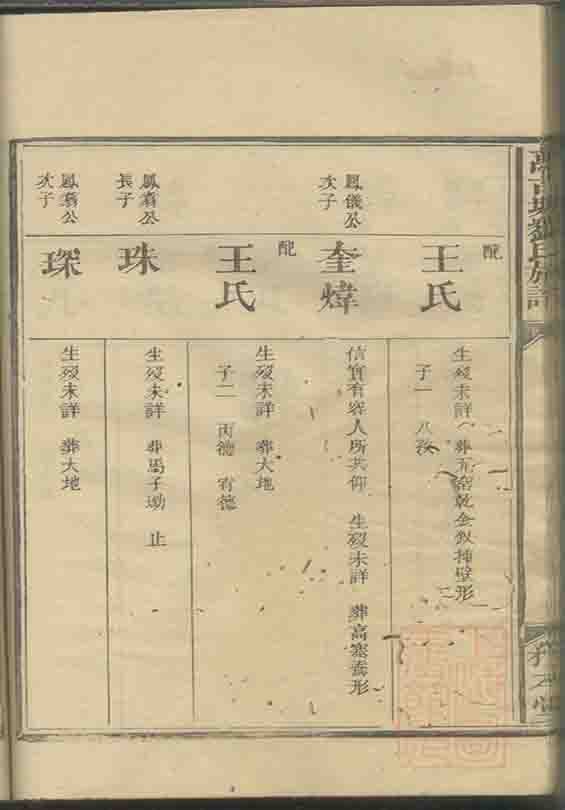 配
王氏
生歿未詳 葬瓦窑乾金釵掛壁形
子一 八孜
鳳儀公
次子
奎煒
信實有容人所共仰 生歿未詳 葬高寨喬形
配
王氏
生歿未詳 葬大地
子二 丙德 有德
鳳翥公
長子
珠
生歿未詳 葬馬子坳 止
鳳翥公
次子
琛
生歿未詳 葬大地